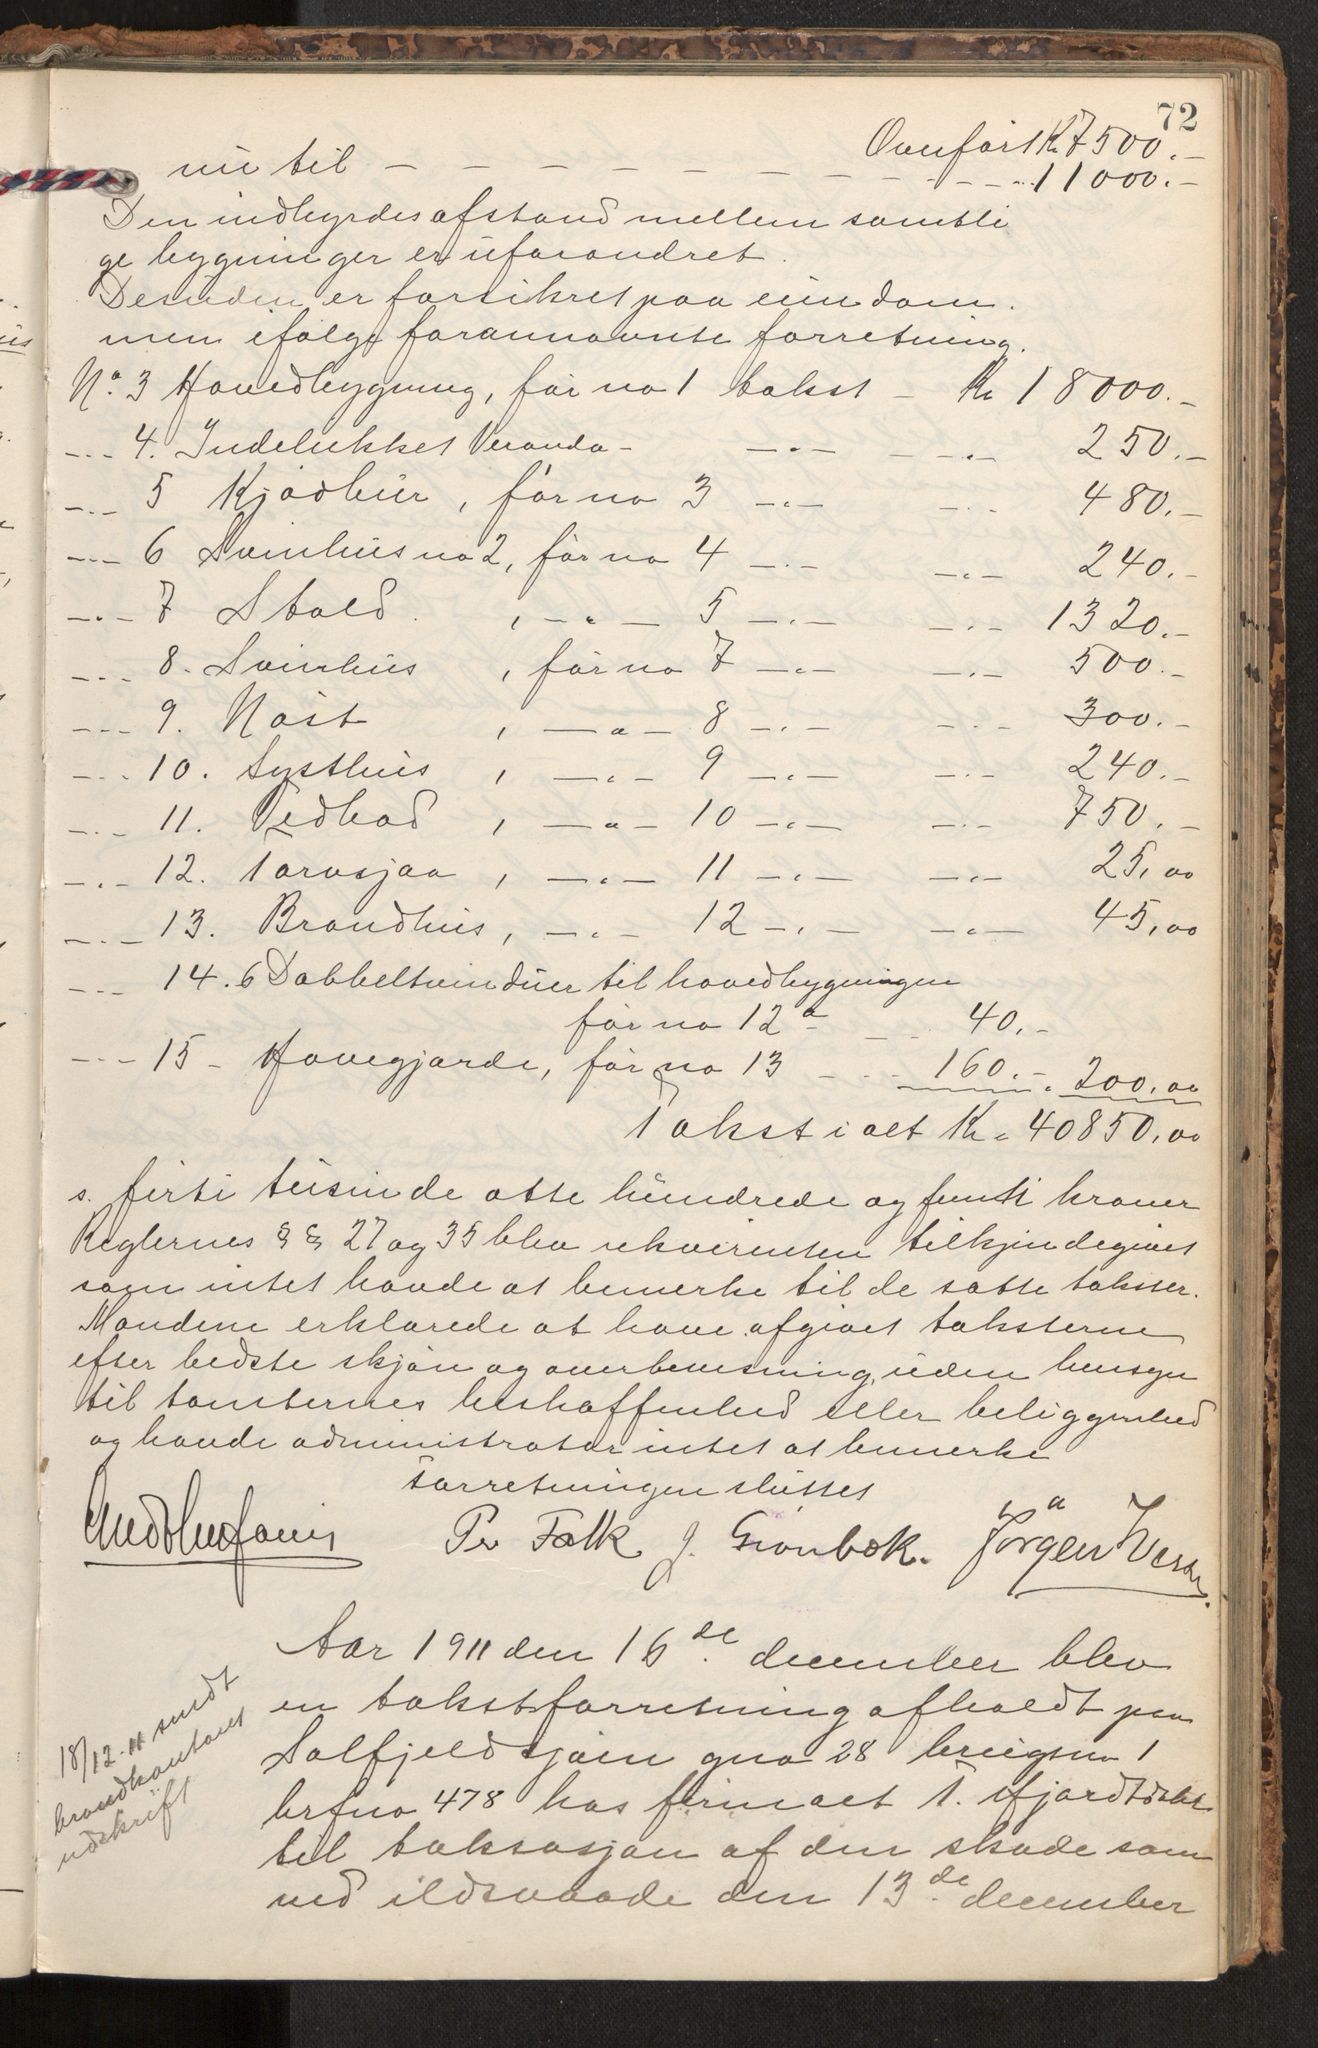 72
Overført Kr 7500.-
nu til - - - - - - - - - - - " 11000.-
Den indbyrdes afstand mellem samtli
ge bygninger er uforandret.
Desuden er forsikret paa eiendom.
men ifølge forannævnte forretning.
No. 3 Hovedbygning, før no 1 takst - Kr 18000.-
-"- 4. Indelukket Veranda - -"- -"- 250.-
-"- 5 Kjødbur, før no 3 -"- -"- 480.-
-"- 6 Svinhus no 2, før no 4 -"- -"- 240.-
-"- 7 Stald. , -"- 5 -"- -"- 1320.-
-"- 8. Svinhus , før no 7 -"- -"- 500.-
-"- 9. Nøst , -"- 8 -"- -"- 300.-
-"- 10. Lysthus , -"- 9 -"- -"- 240.-
-"- 11. Vedbod , -"- 10 -"- -"- 750.-
-"- 12. Torvsjaa , -"- 11 -"- -"- 25,00
-"- 13. Brondhus, -"- 12 -"- -"- 45,00
-"- 14. 6 Dobbeltvinduer til hovedbygningen
før no 12a - - 40.-
-"- 15 - Havegjærde, før no 13 - - 160.- " 200,00
Takst i alt Kr. 40850,00
s. firti tusinde otte hundrede og femti kroner
Reglernes § § 27 og 35 blev rekvirenten tilkjendegivet
som intet havde at bemerke til de satte takster.
Mændene erklærede at have afgivet taksterne
efter bedste skjøn og overbevisning, uden hensyn
til tomternes beskaffenhed eller beliggenhed
og havde administrator intet at bemerke
Forretningen sluttet
Per Falk J. Grønbæk. Jørgen
Aar 1911 den 16de december blev
en takstforretning afholdt paa
Solfjeldsjøen gno 28 brugsno 1
brfno 478 hos firmaet
til taksasjon af den skade som
ved ildsvaade den 13de december
18/12-11 sendt
brandkontoret
udskrift